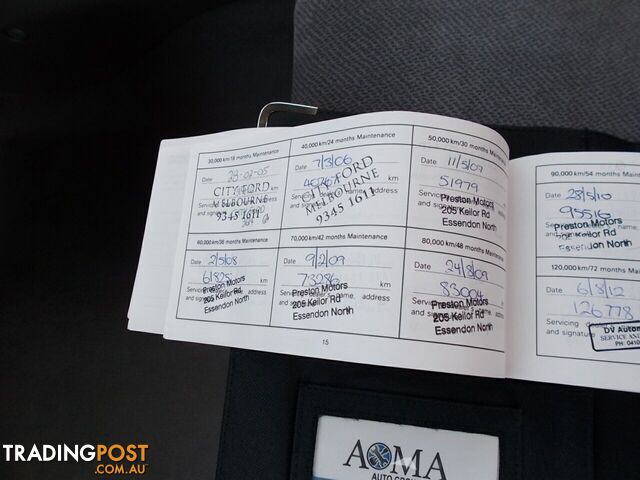 30,000 km/18 months Maintenance
Date 28-02-05
CITY FORD
MELBOURNE
9345 1611
40,000 km/24 months Maintenance
Date 7/3/06
km
CITY FORD
MELBOURNE
9345 1611
address
50,000 km/30 months Maintenance
Date 11/5/07
51979 km
Preston Motors
205 Keilor Rd
Essendon North
60,000 km/36 months Maintenance
Date 2/5/08
km
Preston Motors
205 Keilor Rd
Essendon North
70,000 km/42 months Maintenance
Date 9/2/09
73286 km
Preston Motors
205 Keilor Rd
Essendon North
80,000 km/48 months Maintenance
Date 24/8/09
83004
Preston Motors
205 Keilor Rd
Essendon North
15
90,000 km/54 months Maintenance
Date 28/5/10
95516
Preston Motors
Keilor Rd
Essendon North
120,000 km/72 months Maintenance
Date 6/8/12
126778
Servicing
and signature
DV Autom
SERVICE AND
PH: 0410
AOMA
AUTO GRO
TRADINGPOST
.COM.AU